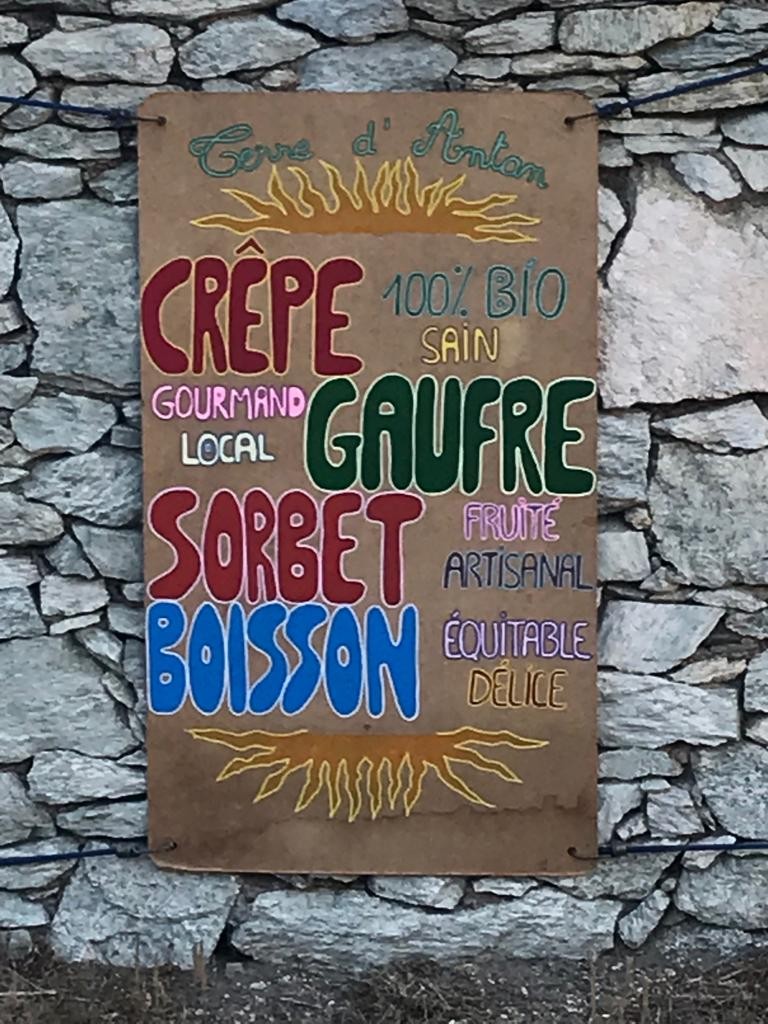 Terre d'Antan
CRÊPE
100% BÏO
SAIN
GOURMAND
LOCAL
GAUFRE
SORBET
FRUITÉ
ARTISANAL
BOISSON
ÉQUITABLE
DÉLICE